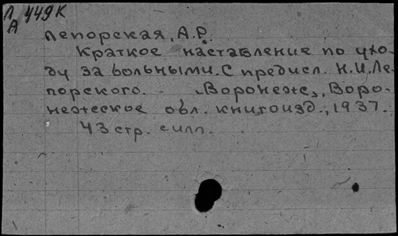 Л 449К
А
Лепорская, А.Р.
Краткое наставление по ухо-
ду за больными. С предисл. Н.И.Ле-
порского. Воронеж, Воро-
нежское обл. книгоизд., 1937.
43 стр. с илл.